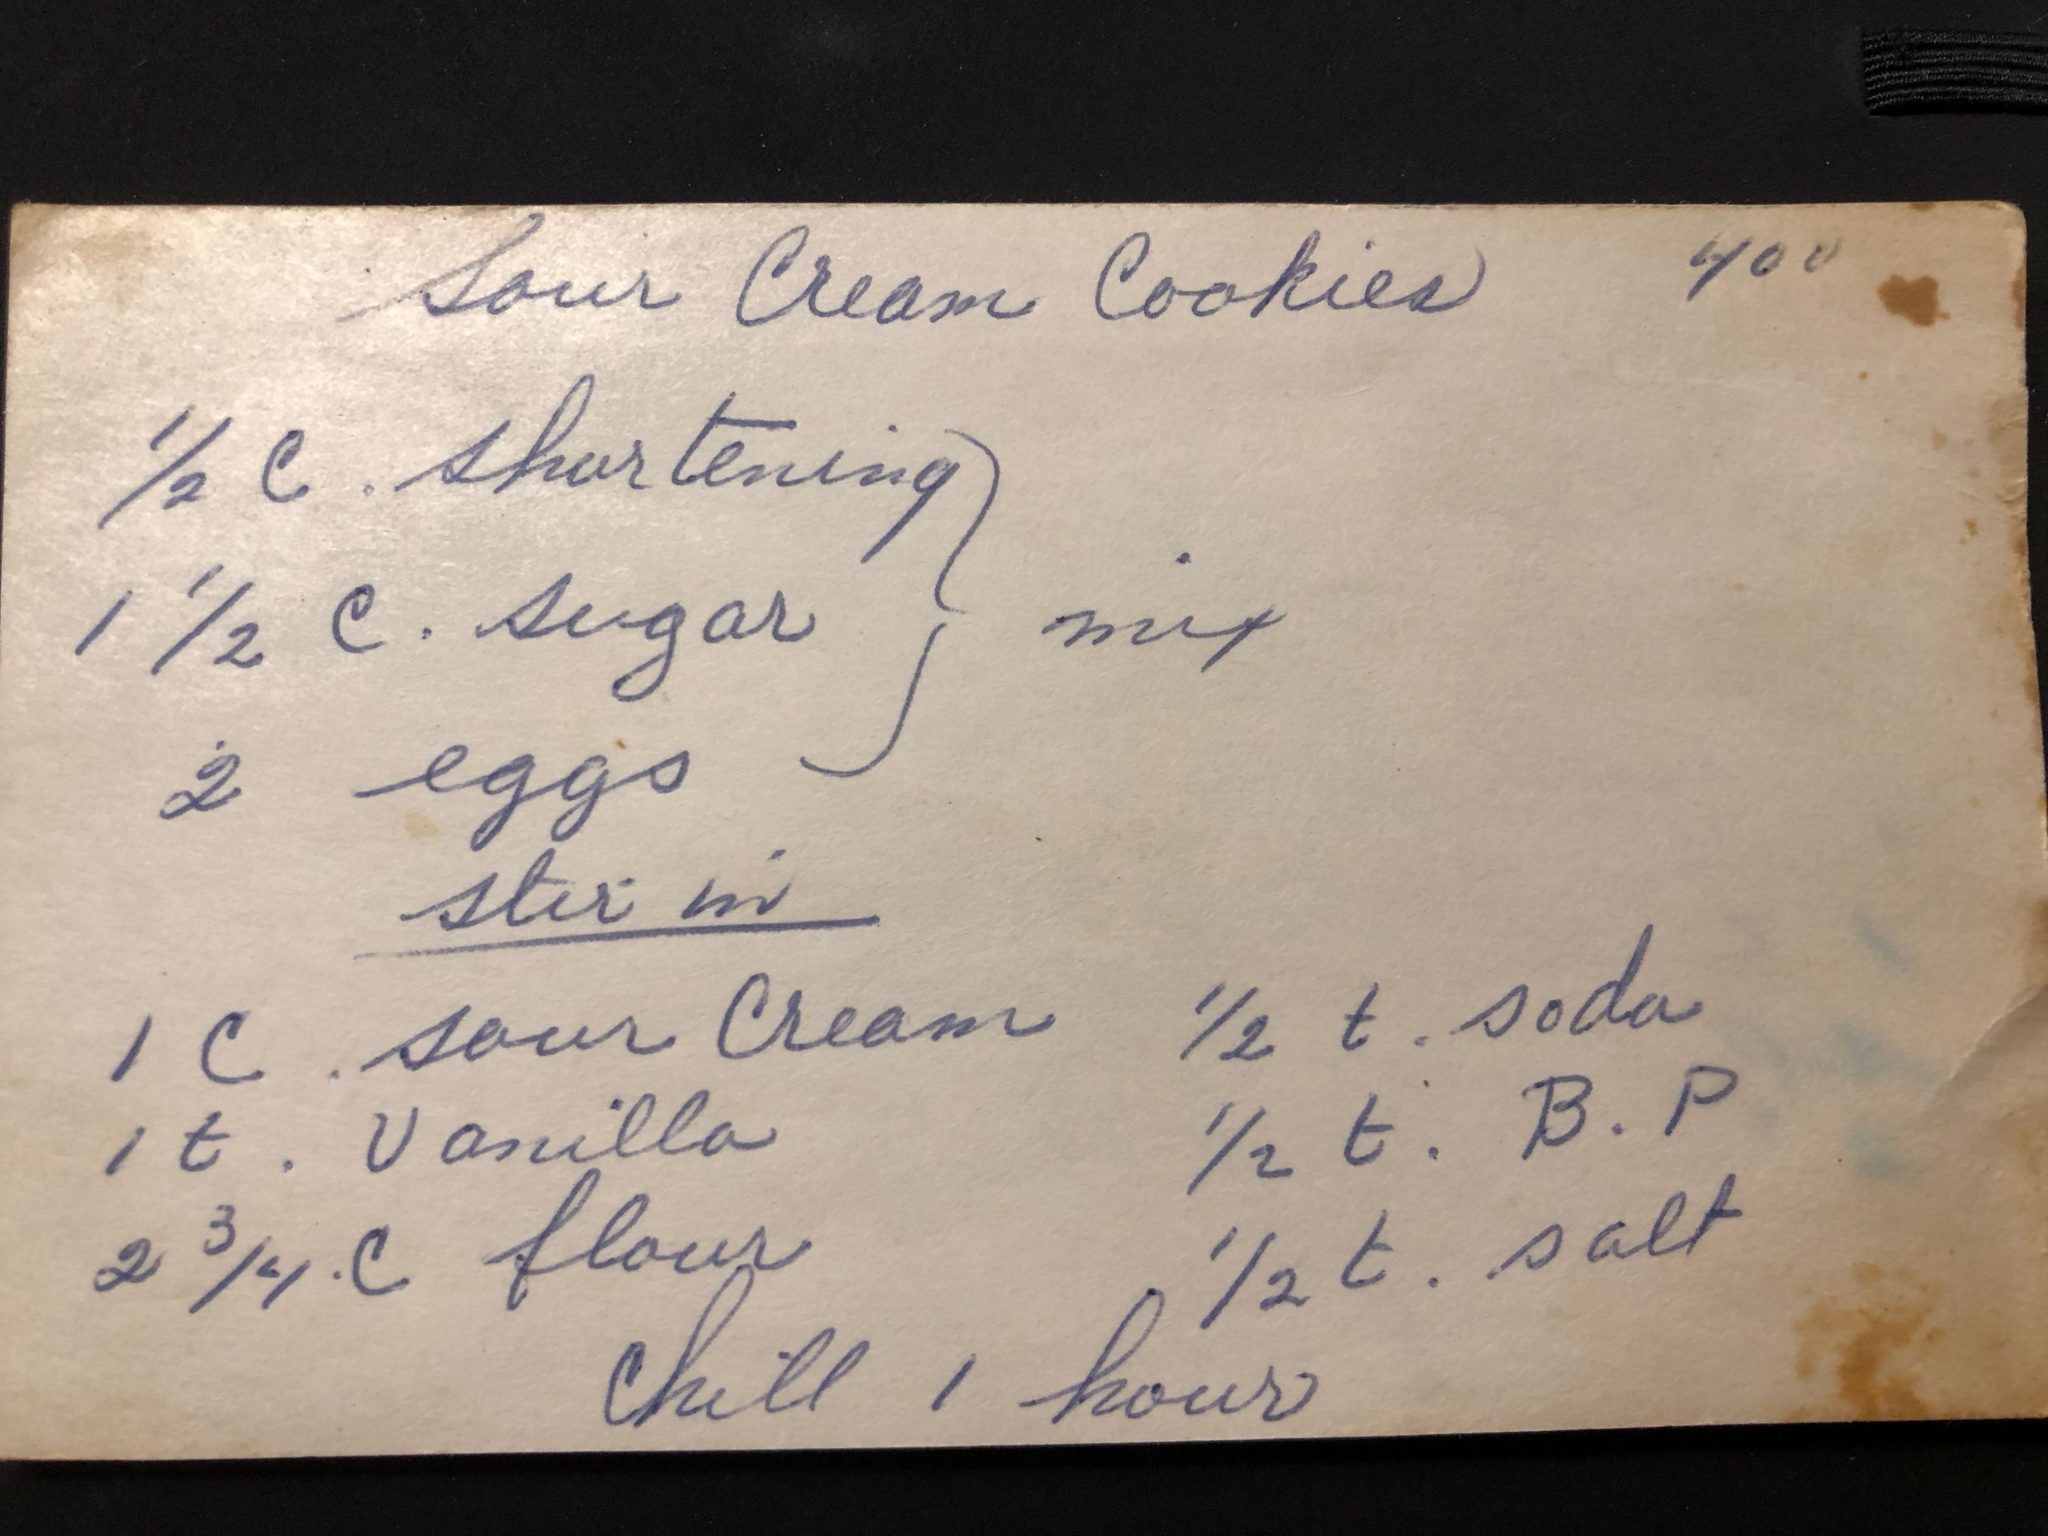 Sour Cream Cookies 400
1/2 C. shortening
1 1/2 C. sugar } mix
2 eggs
stir in
1 C. sour Cream 1/2 t. soda
1 t. Vanilla 1/2 t. B.P
2 3/4.C flour 1/2 t. salt
Chill 1 hour